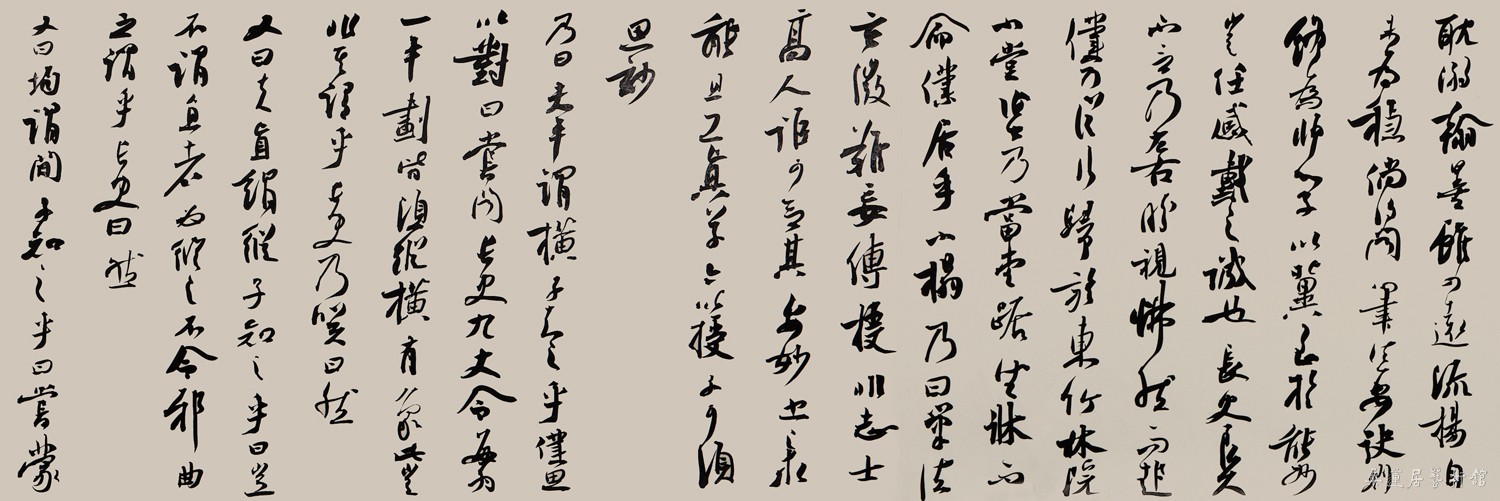 耽溺翰墨雖四遠流揚自
未為穩倘得聞筆法要訣則
終為師學以冀至於能妙
豈任感戴之誠也長史良久
不言乃左右盼視怫然而起
僕乃從行歸於東竹林院
小堂張公乃當堂踞坐牀而
命僕居乎小榻乃曰筆法
玄微難妄傳授非志士
高人詎可言其要妙書之求
能且工真草今以授子可須
思妙
乃曰夫平謂橫子知之乎僕思
以對曰嘗聞長史九丈令每為
一平劃皆須縱橫有象此豈
非其謂乎長史乃笑曰然
又曰夫直謂縱子知之乎曰豈
不謂直者為縱之不令邪曲
之謂乎長史曰然
又曰均謂間子知之乎曰嘗蒙